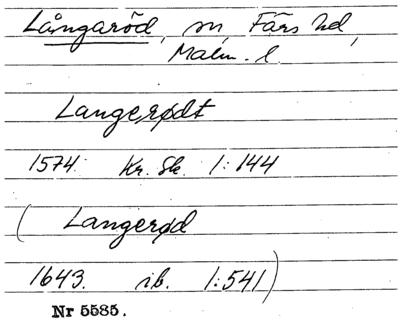 Långaröd, sn, Färs hd,
Malm. l.
Langerødt
1574. Kr. Sk. 1:144
(Langerød
1643. ib. 1:541)
Nr 5585.